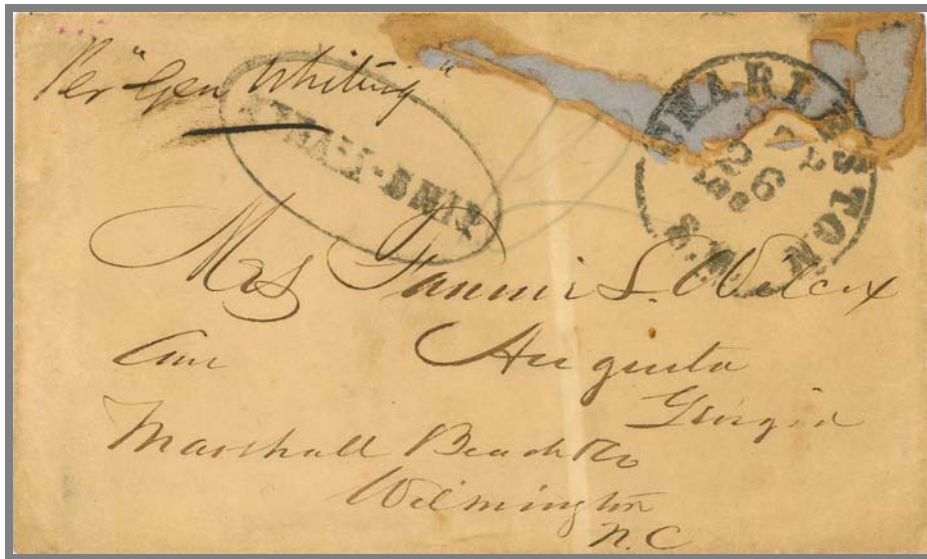 Per "Gen Whiting"
STEAM-SHIP
CHARLESTON S.C.
26
Mrs Fannie L. Wilcox
Care Augusta
Georgia
Marshall Beach & Co
Wilmington
N.C